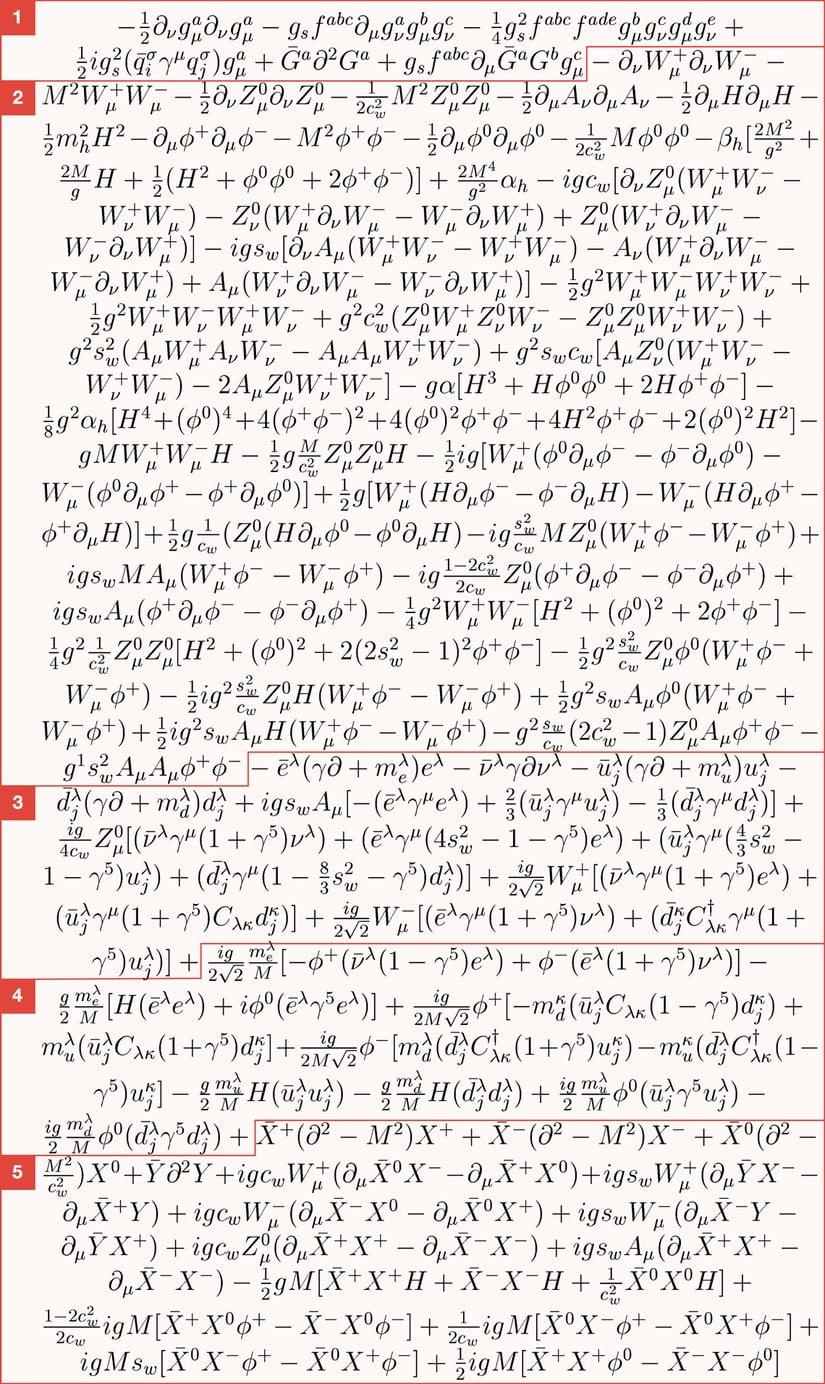 1
-\frac{1}{2}∂_νg^a_μ∂_νg^a_μ − g_sf^{abc}∂_μg^a_νg^b_μg^c_ν − \frac{1}{4}g^2_sf^{abc}f^{ade}g^b_μg^c_νg^d_μg^e_ν +
\frac{1}{2}ig^2_s(q̄^σ_iγ^μq^σ_j)g^a_μ + Ḡ^a∂^2G^a + g_sf^{abc}∂_μḠ^aG^bg^c_μ − ∂_νW^+_μ∂_νW^-_μ −
2
M^2W^+_μW^-_μ − \frac{1}{2}∂_νZ^0_μ∂_νZ^0_μ − \frac{1}{2c^2_w}M^2Z^0_μZ^0_μ − \frac{1}{2}∂_μA_ν∂_μA_ν − \frac{1}{2}∂_μH∂_μH −
\frac{1}{2}m^2_hH^2 − ∂_μϕ^+∂_μϕ^- − M^2ϕ^+ϕ^- − \frac{1}{2}∂_μϕ^0∂_μϕ^0 − \frac{1}{2c^2_w}Mϕ^0ϕ^0 − β_h[\frac{2M^2}{g^2} +
\frac{2M}{g}H + \frac{1}{2}(H^2 + ϕ^0ϕ^0 + 2ϕ^+ϕ^-)] + \frac{2M^4}{g^2}α_h − igc_w[∂_νZ^0_μ(W^+_μW^-_ν −
W^+_νW^-_μ) − Z^0_ν(W^+_μ∂_νW^-_μ − W^-_μ∂_νW^+_μ) + Z^0_μ(W^+_ν∂_νW^-_μ −
W^-_ν∂_νW^+_μ)] − igs_w[∂_νA_μ(W^+_μW^-_ν − W^+_νW^-_μ) − A_ν(W^+_μ∂_νW^-_μ −
W^-_μ∂_νW^+_μ) + A_μ(W^+_ν∂_νW^-_μ − W^-_ν∂_νW^+_μ)] − \frac{1}{2}g^2W^+_μW^-_μW^+_νW^-_ν +
\frac{1}{2}g^2W^+_μW^-_νW^+_μW^-_ν + g^2c^2_w(Z^0_μW^+_μZ^0_νW^-_ν − Z^0_μZ^0_μW^+_νW^-_ν) +
g^2s^2_w(A_μW^+_μA_νW^-_ν − A_μA_μW^+_νW^-_ν) + g^2s_wc_w[A_μZ^0_ν(W^+_μW^-_ν −
W^+_νW^-_μ) − 2A_μZ^0_μW^+_νW^-_ν] − gα[H^3 + Hϕ^0ϕ^0 + 2Hϕ^+ϕ^-] −
\frac{1}{8}g^2α_h[H^4 + (ϕ^0)^4 + 4(ϕ^+ϕ^-)^2 + 4(ϕ^0)^2ϕ^+ϕ^- + 4H^2ϕ^+ϕ^- + 2(ϕ^0)^2H^2] −
gMW^+_μW^-_μH − \frac{1}{2}g\frac{M}{c^2_w}Z^0_μZ^0_μH − \frac{1}{2}ig[W^+_μ(ϕ^0∂_μϕ^- − ϕ^-∂_μϕ^0) −
W^-_μ(ϕ^0∂_μϕ^+ − ϕ^+∂_μϕ^0)] + \frac{1}{2}g[W^+_μ(H∂_μϕ^- − ϕ^-∂_μH) − W^-_μ(H∂_μϕ^+ −
ϕ^+∂_μH)] + \frac{1}{2}g\frac{1}{c_w}(Z^0_μ(H∂_μϕ^0 − ϕ^0∂_μH) − ig\frac{s^2_w}{c_w}MZ^0_μ(W^+_μϕ^- − W^-_μϕ^+) +
igs_wMA_μ(W^+_μϕ^- − W^-_μϕ^+) − ig\frac{1-2c^2_w}{2c_w}Z^0_μ(ϕ^+∂_μϕ^- − ϕ^-∂_μϕ^+) +
igs_wA_μ(ϕ^+∂_μϕ^- − ϕ^-∂_μϕ^+) − \frac{1}{4}g^2W^+_μW^-_μ[H^2 + (ϕ^0)^2 + 2ϕ^+ϕ^-] −
\frac{1}{4}g^2\frac{1}{c^2_w}Z^0_μZ^0_μ[H^2 + (ϕ^0)^2 + 2(2s^2_w − 1)^2ϕ^+ϕ^-] − \frac{1}{2}g^2\frac{s^2_w}{c_w}Z^0_μϕ^0(W^+_μϕ^- +
W^-_μϕ^+) − \frac{1}{2}ig^2\frac{s^2_w}{c_w}Z^0_μH(W^+_μϕ^- − W^-_μϕ^+) + \frac{1}{2}g^2s_wA_μϕ^0(W^+_μϕ^- +
W^-_μϕ^+) + \frac{1}{2}ig^2s_wA_μH(W^+_μϕ^- − W^-_μϕ^+) − g^2\frac{s_w}{c_w}(2c^2_w − 1)Z^0_μA_μϕ^+ϕ^- −
g^1s^2_wA_μA_μϕ^+ϕ^- − ē^λ(γ∂ + m^λ_e)e^λ − ν̄^λγ∂ν^λ − ū^λ_j(γ∂ + m^λ_u)u^λ_j −
3
d̄^λ_j(γ∂ + m^λ_d)d^λ_j + igs_wA_μ[−(ē^λγ^μe^λ) + \frac{2}{3}(ū^λ_jγ^μu^λ_j) − \frac{1}{3}(d̄^λ_jγ^μd^λ_j)] +
\frac{ig}{4c_w}Z^0_μ[(ν̄^λγ^μ(1 + γ^5)ν^λ) + (ē^λγ^μ(4s^2_w − 1 − γ^5)e^λ) + (ū^λ_jγ^μ(\frac{4}{3}s^2_w −
1 − γ^5)u^λ_j) + (d̄^λ_jγ^μ(1 − \frac{8}{3}s^2_w − γ^5)d^λ_j)] + \frac{ig}{2√2}W^+_μ[(ν̄^λγ^μ(1 + γ^5)e^λ) +
(ū^λ_jγ^μ(1 + γ^5)C_{λκ}d^κ_j)] + \frac{ig}{2√2}W^-_μ[(ē^λγ^μ(1 + γ^5)ν^λ) + (d̄^κ_jC^†_{λκ}γ^μ(1 +
γ^5)u^λ_j)] + \frac{ig}{2√2}\frac{m^λ_e}{M}[−ϕ^+(ν̄^λ(1 − γ^5)e^λ) + ϕ^-(ē^λ(1 + γ^5)ν^λ)] −
4
\frac{g}{2}\frac{m^λ_e}{M}[H(ē^λe^λ) + iϕ^0(ē^λγ^5e^λ)] + \frac{ig}{2M√2}ϕ^+[−m^κ_d(ū^λ_jC_{λκ}(1 − γ^5)d^κ_j) +
m^λ_u(ū^λ_jC_{λκ}(1 + γ^5)d^κ_j] + \frac{ig}{2M√2}ϕ^-[m^λ_d(d̄^λ_jC^†_{λκ}(1 + γ^5)u^κ_j) − m^κ_u(d̄^λ_jC^†_{λκ}(1 −
γ^5)u^κ_j] − \frac{g}{2}\frac{m^λ_u}{M}H(ū^λ_ju^λ_j) − \frac{g}{2}\frac{m^λ_d}{M}H(d̄^λ_jd^λ_j) + \frac{ig}{2}\frac{m^λ_u}{M}ϕ^0(ū^λ_jγ^5u^λ_j) −
\frac{ig}{2}\frac{m^λ_d}{M}ϕ^0(d̄^λ_jγ^5d^λ_j) + X̄^+(∂^2 − M^2)X^+ + X̄^-(∂^2 − M^2)X^- + X̄^0(∂^2 −
5
\frac{M^2}{c^2_w})X^0 + Ȳ∂^2Y + igc_wW^+_μ(∂_μX̄^0X^- − ∂_μX̄^+X^0) + igs_wW^+_μ(∂_μȲX^- −
∂_μX̄^+Y) + igc_wW^-_μ(∂_μX̄^-X^0 − ∂_μX̄^0X^+) + igs_wW^-_μ(∂_μX̄^-Y −
∂_μȲX^+) + igc_wZ^0_μ(∂_μX̄^+X^+ − ∂_μX̄^-X^-) + igs_wA_μ(∂_μX̄^+X^+ −
∂_μX̄^-X^-) − \frac{1}{2}gM[X̄^+X^+H + X̄^-X^-H + \frac{1}{c^2_w}X̄^0X^0H] +
\frac{1-2c^2_w}{2c_w}igM[X̄^+X^0ϕ^+ − X̄^-X^0ϕ^-] + \frac{1}{2c_w}igM[X̄^0X^-ϕ^+ − X̄^0X^+ϕ^-] +
igMs_w[X̄^0X^-ϕ^+ − X̄^0X^+ϕ^-] + \frac{1}{2}igM[X̄^+X^+ϕ^0 − X̄^-X^-ϕ^0]